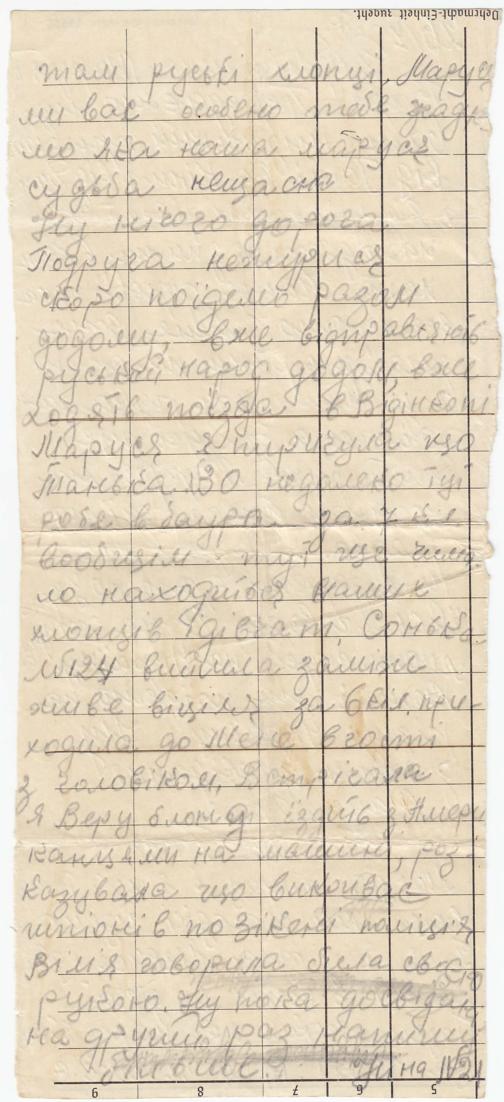 Wehrmacht-Einheit zugeht.
там руські хлопці, Маруся
ми вас особено тебе згаду-
мо яка наша маруся
судьба нещасна
Ну нічого дорога
Подруга нежурися
скоро поїдемо разом
додому, вже відправляють
руський народ додому, вже
ходять поїзда в
Маруся я почула що
Танька 130 недалеко тут
робе в баура за 7 кіл
вообщім тут ще чима-
ло находиться наших
хлопців і дівчат, Сонька
№124 вийшла заміж
живе від за 6 кіл, при-
ходила до мене в гості
з чоловіком, Встрічала
я Веру блонді їздить з Амери
канцями на машині, роз-
казувала що викопває
шпіонів по поліція
била своєю
рукою. Ну пока досвідан
на другий раз напишу
більше. Ніна №21
9 8 7 6 5